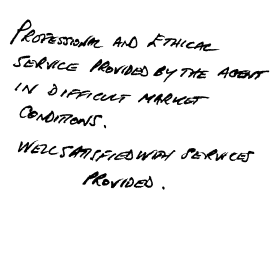 PROFESSIONAL AND ETHICAL
SERVICE PROVIDED BY THE AGENT
IN DIFFICULT MARKET
CONDITIONS.
WELL SATISFIED WITH SERVICES
PROVIDED.